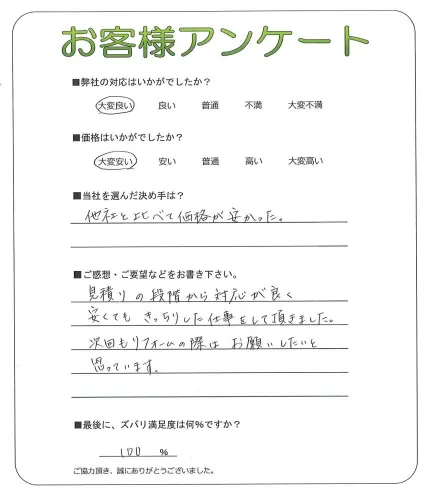 お客様アンケート
■弊社の対応はいかがでしたか？
大変良い 良い 普通 不満 大変不満
■価格はいかがでしたか？
大変安い 安い 普通 高い 大変高い
■当社を選んだ決め手は？
他社と比べて価格が安かった。
■ご感想・ご要望などをお書き下さい。
見積りの段階から対応が良く
安くても きっちりした仕事をして頂きました。
次回もリフォームの際は お願いしたいと
思っています。
■最後に、ズバリ満足度は何％ですか？
100 %
ご協力頂き、誠にありがとうございました。